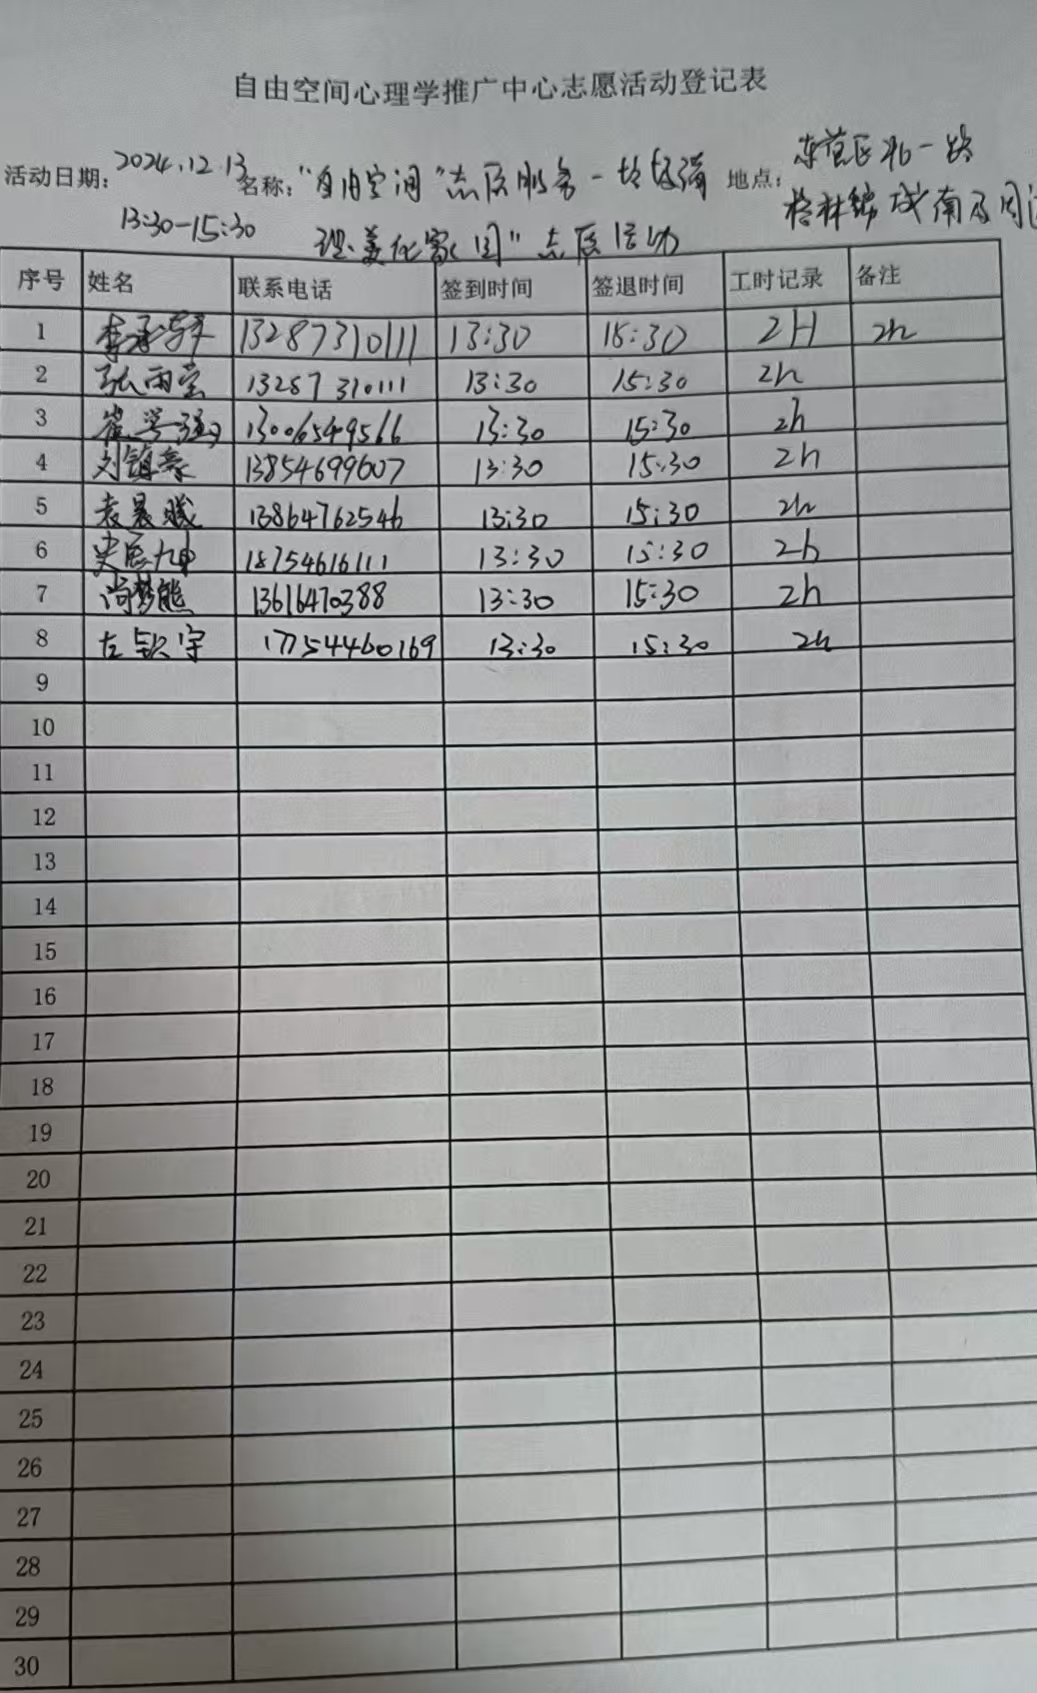 自由空间心理学推广中心志愿活动登记表
活动日期: 2024.12.13 名称: "自由空间"志愿服务-垃圾清 地点: 东营区北一路
13:30-15:30 理·美化家园"志愿活动 格林锦城南及周
序号 姓名 联系电话 签到时间 签退时间 工时记录 备注
1 李 13287310111 13:30 15:30 2H 2h
2 张雨 13287310111 13:30 15:30 2h
3 崔 13006549566 13:30 15:30 2h
4 刘镇豪 13854699607 13:30 15:30 2h
5 袁晨曦 13864762546 13:30 15:30 2h
6 史 18754616111 13:30 15:30 2h
7 尚梦熊 13616470388 13:30 15:30 2h
8 左钦宇 17754460169 13:30 15:30 2h
9
10
11
12
13
14
15
16
17
18
19
20
21
22
23
24
25
26
27
28
29
30